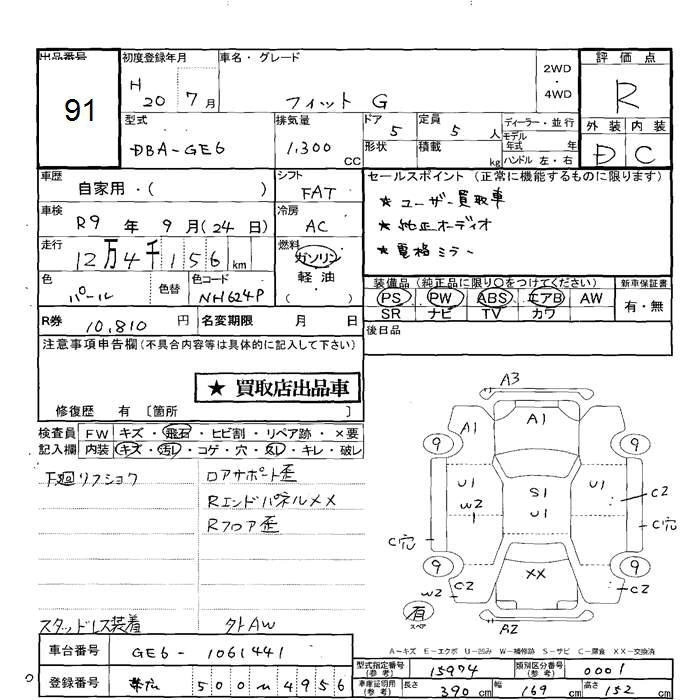 出品番号 初度登録年月 車名・グレード 2WD ・ 4WD 評価点
91 H 20 7月 フィット G R
型式 排気量 ドア 定員 ディーラー・並行 外装 内装
DBA-GE6 1,300 CC 5 5 人 モデル年式 年 D C
形状 積載 kg ハンドル 左・右
車歴 シフト セールスポイント (正常に機能するものに限ります)
自家用・( ) FAT ★ ユーザー買取車
車検 冷房 ★ 純正オーディオ
R9 年 9 月(24 日) AC ★ 電格ミラー
走行 燃料
12万4千156km ガソリン
軽・油
( )
色 色替 色コード 装備品 (純正品に限り〇をつけてください) 新車保証書
パール NH624P PS PW ABS エアB AW 有・無
SR ナビ TV カワ
R券 10,810 円 名変期限 月 日 後日品
注意事項申告欄(不具合内容等は具体的に記入して下さい)
★ 買取店出品車
修復歴 有 〔箇所 〕
検査員 FW キズ・飛石・ヒビ割・リペア跡・×要
記入欄 内装 キズ・汚レ・コゲ・穴・スレ・キレ・破レ
下廻リフショク ロアサポート歪
RエンドパネルXX
Rフロア歪
スタッドレス装着 タトAW
A3
A1 A1
9 9
U1 S1 U1 C2
W2 U1
C穴 C穴
9 9
W2 C2 XX C2
有 スペア A2
A-キズ E-エクボ U-凹み W-補修跡 S-サビ C-腐食 XX-交換済
車台番号 GE6-1061441
型式指定番号(参考) 15974 類別区分番号(参考) 0001
登録番号 500 4956
車庫証明用(参考) 長さ 390 cm 幅 169 cm 高さ 152 cm